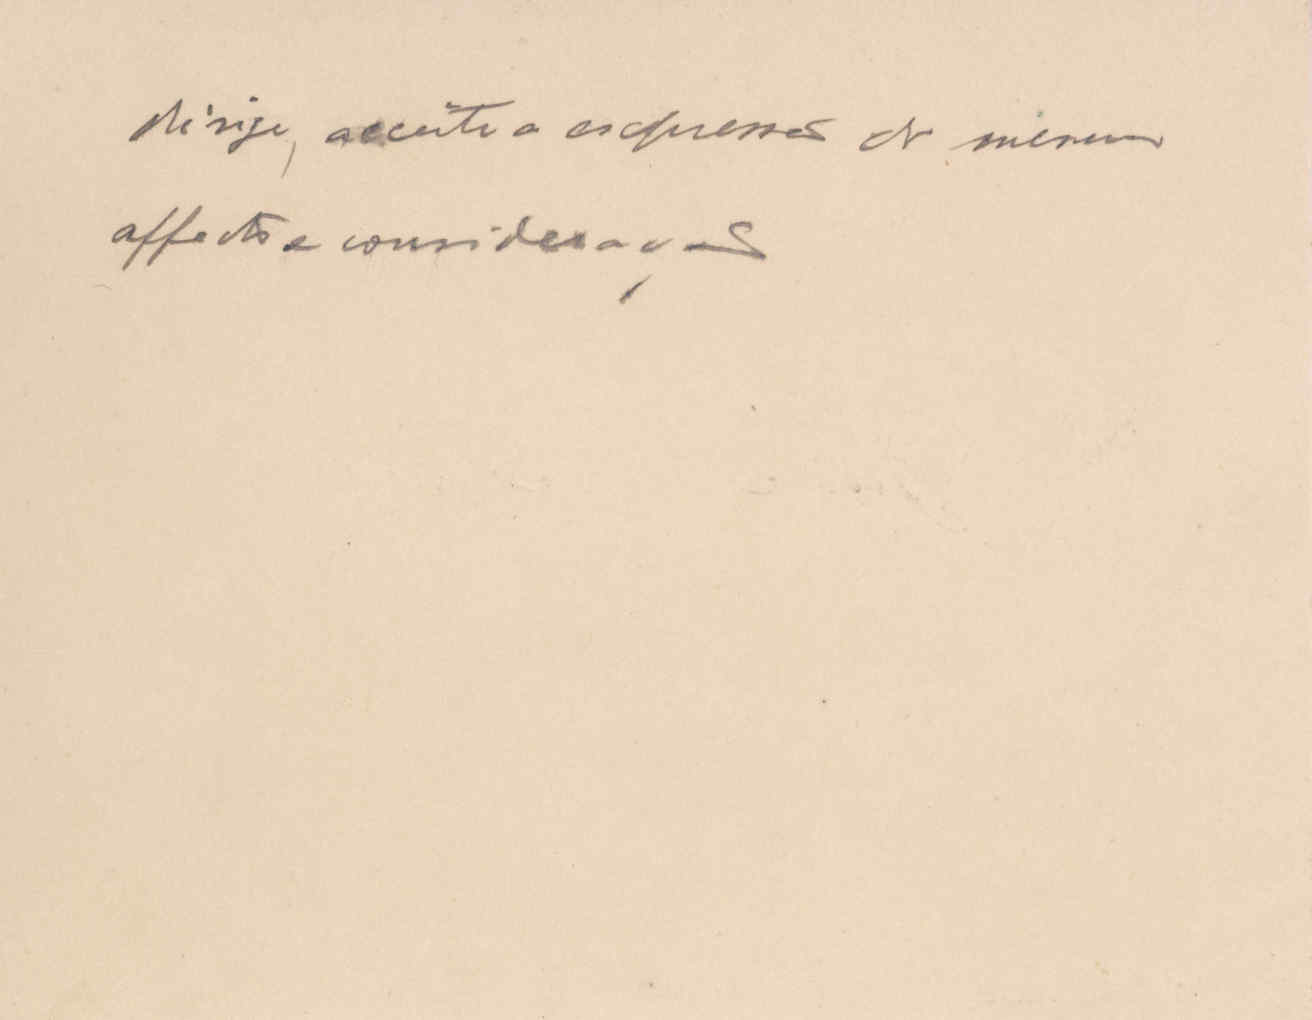 dirige, acceite a expressão de meu
affecto e consideração